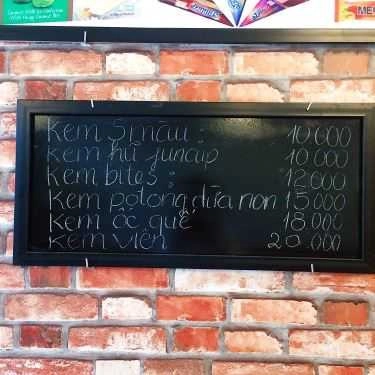 Kem Sinău: 10 000
Kem hũ juncup 10 000
Kem bites: 12 000
Kem polong dừa non 15 000
Kem ốc quế 18.000
Kem viên 20.000